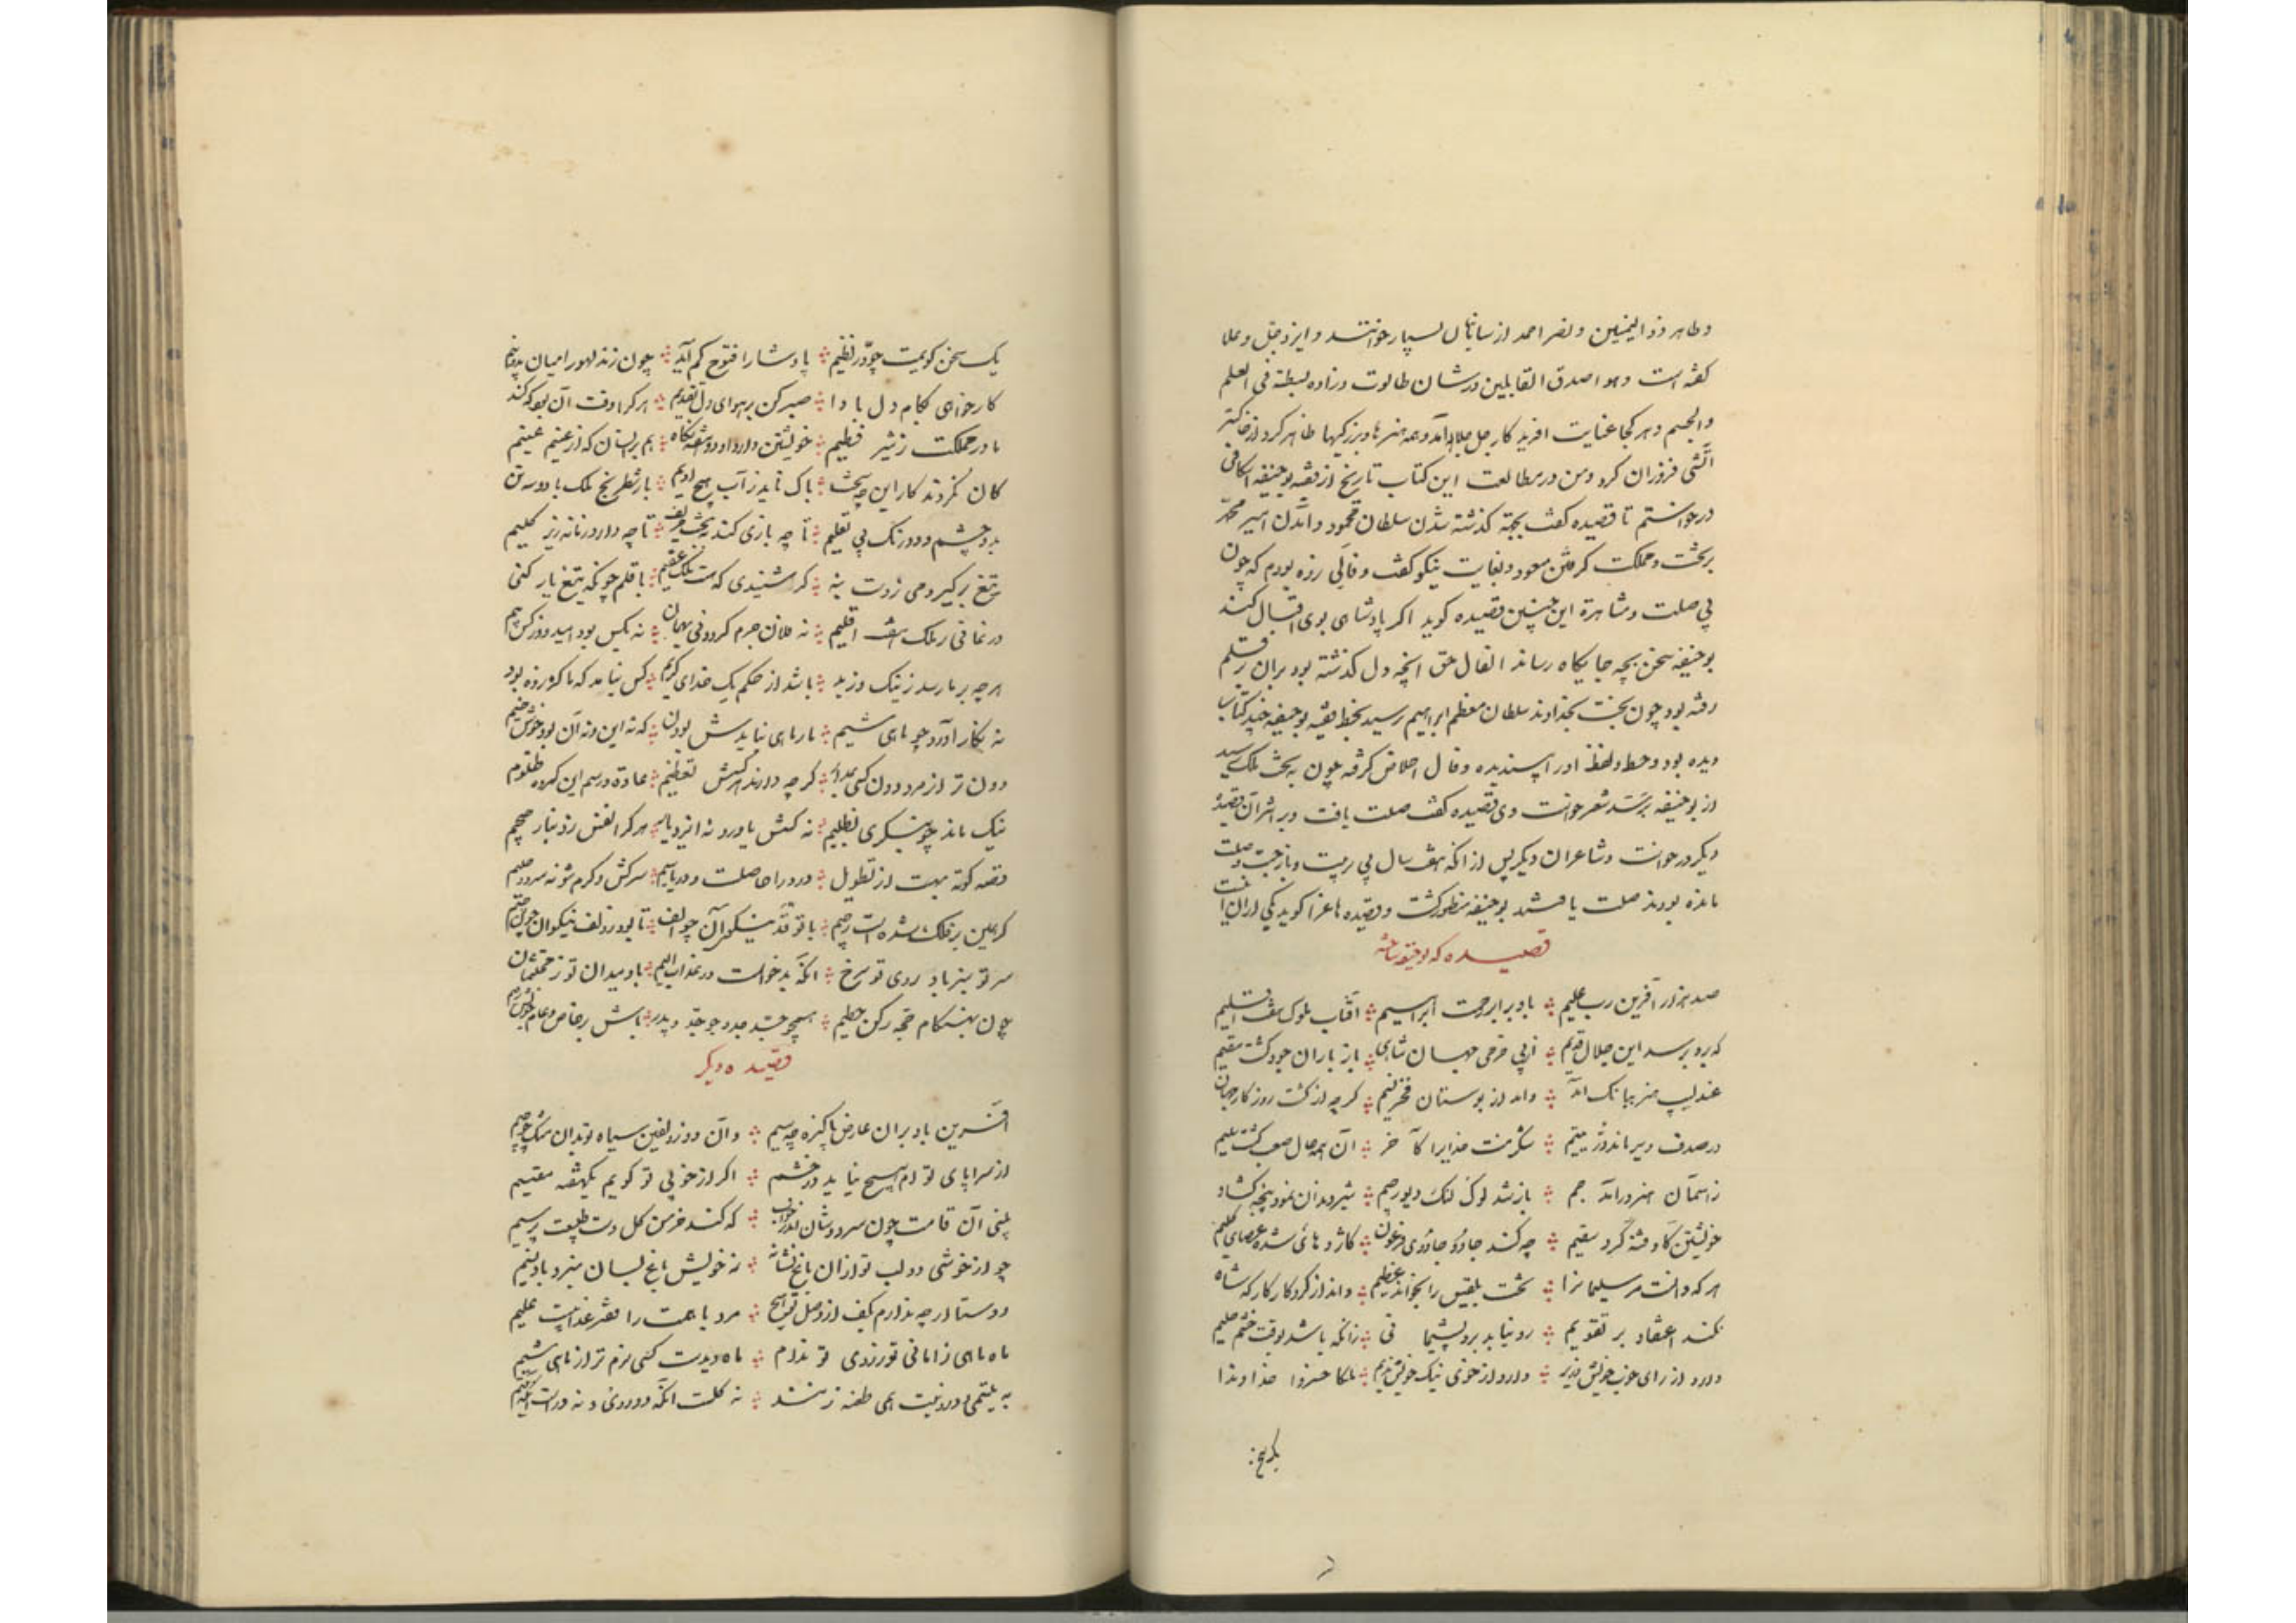 و طاهر ذو الیمینین و نصر احمد از سامانیان بسیار خوانند و ایزد جل و علا
گفته است و هو اصدق القایلین در شان طالوت و زاده بسطة فی العلم
والجسم و هر کجا عنایت آفریدکار جل جلاله آمد و همه هنرها و بزرکیها ظاهر کرد و از خاکستر
آتشی فروزان کرد و من در مطالعت این کتاب تاریخ از فقیه بوحنیفه اسکافی
درخواستم تا قصیده گفت بجهة گذشته شدن سلطان محمود و آمدن امیر محمد
بر تخت و مملکت گرفتن مسعود و بغایت نیکو گفت و فالی زده بودم که چون
بی صلت و مشاهره این چنین قصیده کوید اکر پادشاهی بوی اقبال کند
بوحنیفه سخن بچه جایکاه رساند الفال حق آنچه دل گذشته بود بران قلم
رفته بود چون تخت بخداوند سلطان معظم ابراهیم رسید بخط فقیه بوحنیفه چند کتاب
دیده بود و خط و لفظ او را پسندیده و فال خلاص گرفته چون به تخت ملک رسید
از بوحنیفه پرسید شعر خواست وی قصیده گفت صلت یافت و بر اثر آن قصیدهٔ
دیکر درخواست و شاعران دیکر پس از آنکه هفت سال بی تربیت و بازجست و صلت
مانده بودند صلت یافتند بوحنیفه منظور گشت و قصیده های غرا کوید یکی از آن این است
قصیده که بوحنیفه ساخته
صد هزار آفرین رب علیم ؞ باد بر ابر رحمت ابراهیم ؞ آفتاب ملوک هفت اقلیم
که برو بر سد این جلال قدیم ؞ از پی خرمی جهان شاهی ؞ باز باران جود گشت مقیم
عندلیب هنر ببانک آمد ؞ وامد از بوستان فخر نسیم ؞ کرچه از گشت روزکار جهان
در صدف دیر ماند در یتیم ؞ شکر و منت خدایرا کآخر ؞ آن همه حال صعب گشت سلیم
ز آسمان هنر درآمد جم ؞ باز شد لوک و لنک دیو رجیم ؞ شیر دندان نمود و پنجه گشاد
خویشتن کاو فتنه کرد سقیم ؞ چه کند جادو و جادوی فرعون ؞ کاژدهائی شد عصای کلیم
هر که دانست مر سلیمانرا ؞ تخت بلقیس را نخواند عظیم ؞ داند از کردکار کار که شاه
نکند اعتقاد بر تقویم ؞ ره نیابد برو پشیمانی ؞ زانکه باشد بوقت خشم حلیم
دارد از رای خوب خویش وزیر ؞ دارد از خوی نیک خویش ندیم ؞ ملکا خسروا خداوندا
یک سخن کویمت چو در نظیم ؞ پادشا را فتوح کم ناید ؞ چون زند لهو را میان بدونیم
کار خواهی بکام دل بادا ؞ صبر کن بر هوای دل تقدیم ؞ هر کرا وقت آن بود که کند
مادر مملکت ز شیر فطیم ؞ خویشتن دارد او دو هفته نکاه ؞ هم بر انسان که از غنیم غنیم
کان نکردند کار این چه سخت ؞ باک ناید ز آب هیچ ادیم ؞ باز شطرنج ملک با دو سه تن
بدو چشم و دو رنک بی تعلیم ؞ تا چه بازی کند نخست حریف ؞ تا چه دارد زمانه زیر کلیم
تیغ برگیر و می ز دست بنه ؞ کر شنیدی که هست ملک عقیم ؞ با قلم چونکه تیغ یار کنی
در نمانی ز ملک هفت اقلیم ؞ نه فلان جرم کرد و نی بهمان ؞ نه بکس بود امید و نز کس بیم
هر چه بر ما رسد ز نیک و ز بد ؞ باشد از حکم یک خدای کریم ؞ کس نباشد که با کوزه بود
نه بکار آورد چو ماهی شیم ؞ مار ماهی نبایدش بودن ؞ که نه این و نه آن بود خوش خیم
دون تر از مرد دون کسی بمدار ؞ کرچه دارند هر کسش تعظیم ؞ عادة و رسم این گروه ظلوم
نیک ماند چو بنکری بظلیم ؞ نه کسش یاور و نه ایزد یار ؞ هر کرا نفس زد بنار جحیم
قصه کوته بهست از تطویل ؞ درّ و دریا صلت و دریاسیم ؞ سرکش و کرم شو نه سرد و
سر تو سبز باد و روی تو سرخ ؞ آنکه بدخواست در عذاب الیم ؞ باد میدان تو ز محتشمان
چون بهنکام حج رکن حطیم ؞ همچو جد جد و چو جد و پدر ؞ باش بر خاص و عام خویش رحیم
قصیده دیکر
آفرین باد بر آن عارض پاکیزه چو سیم ؞ و آن دو زلفین سیاه تو بدان مشک
از سراپای توام هیچ نیاید در چشم ؞ اکر از خوبی تو کویم یکهفته مقیم
بینی آن قامت چون سرو روان ؞ که کند خرمن گل دست طبیعت بر سیم
چو از خوشی دو لب تو از آن باغ نشانه ؞ نه خویش باغ بسان هنر باد نسیم
دوستا در چه ندارم بکف از وصل تو هیچ ؞ مرد با همت را فقر عذابست علیم
ماه و ماهی را مانی تو ز روی و تو ندام ؞ ماه دیدست کسی نرم تر از ماهی شیم
به یتیمی و دورویت همی طعنه زنند ؞ نه گلست آنکه دوروی و نه درست
بگریخ